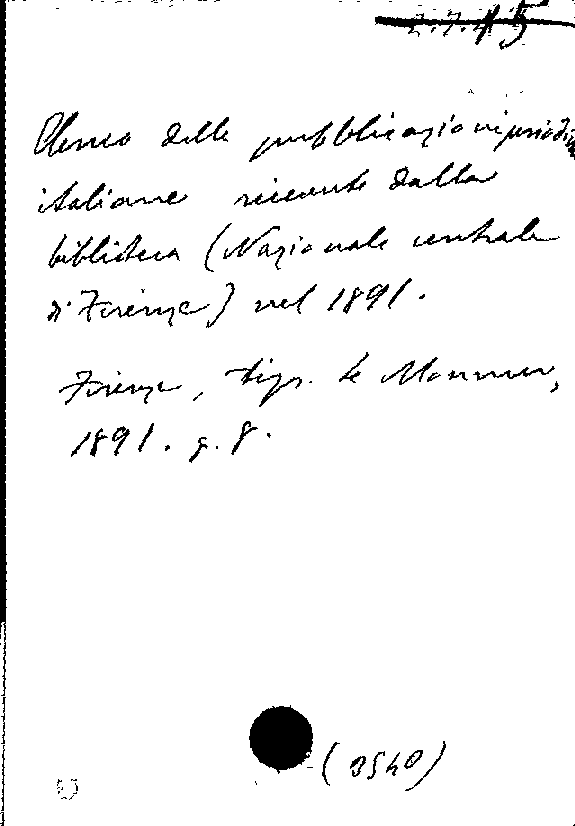 2.7.45
Elenco delle pubblicazioni periodiche
italiane ricevute dalla
biblioteca (Nazionale centrale
di Firenze) nel 1891.
Firenze, tipr. le Monnier,
1891. g. 8.
(3540)